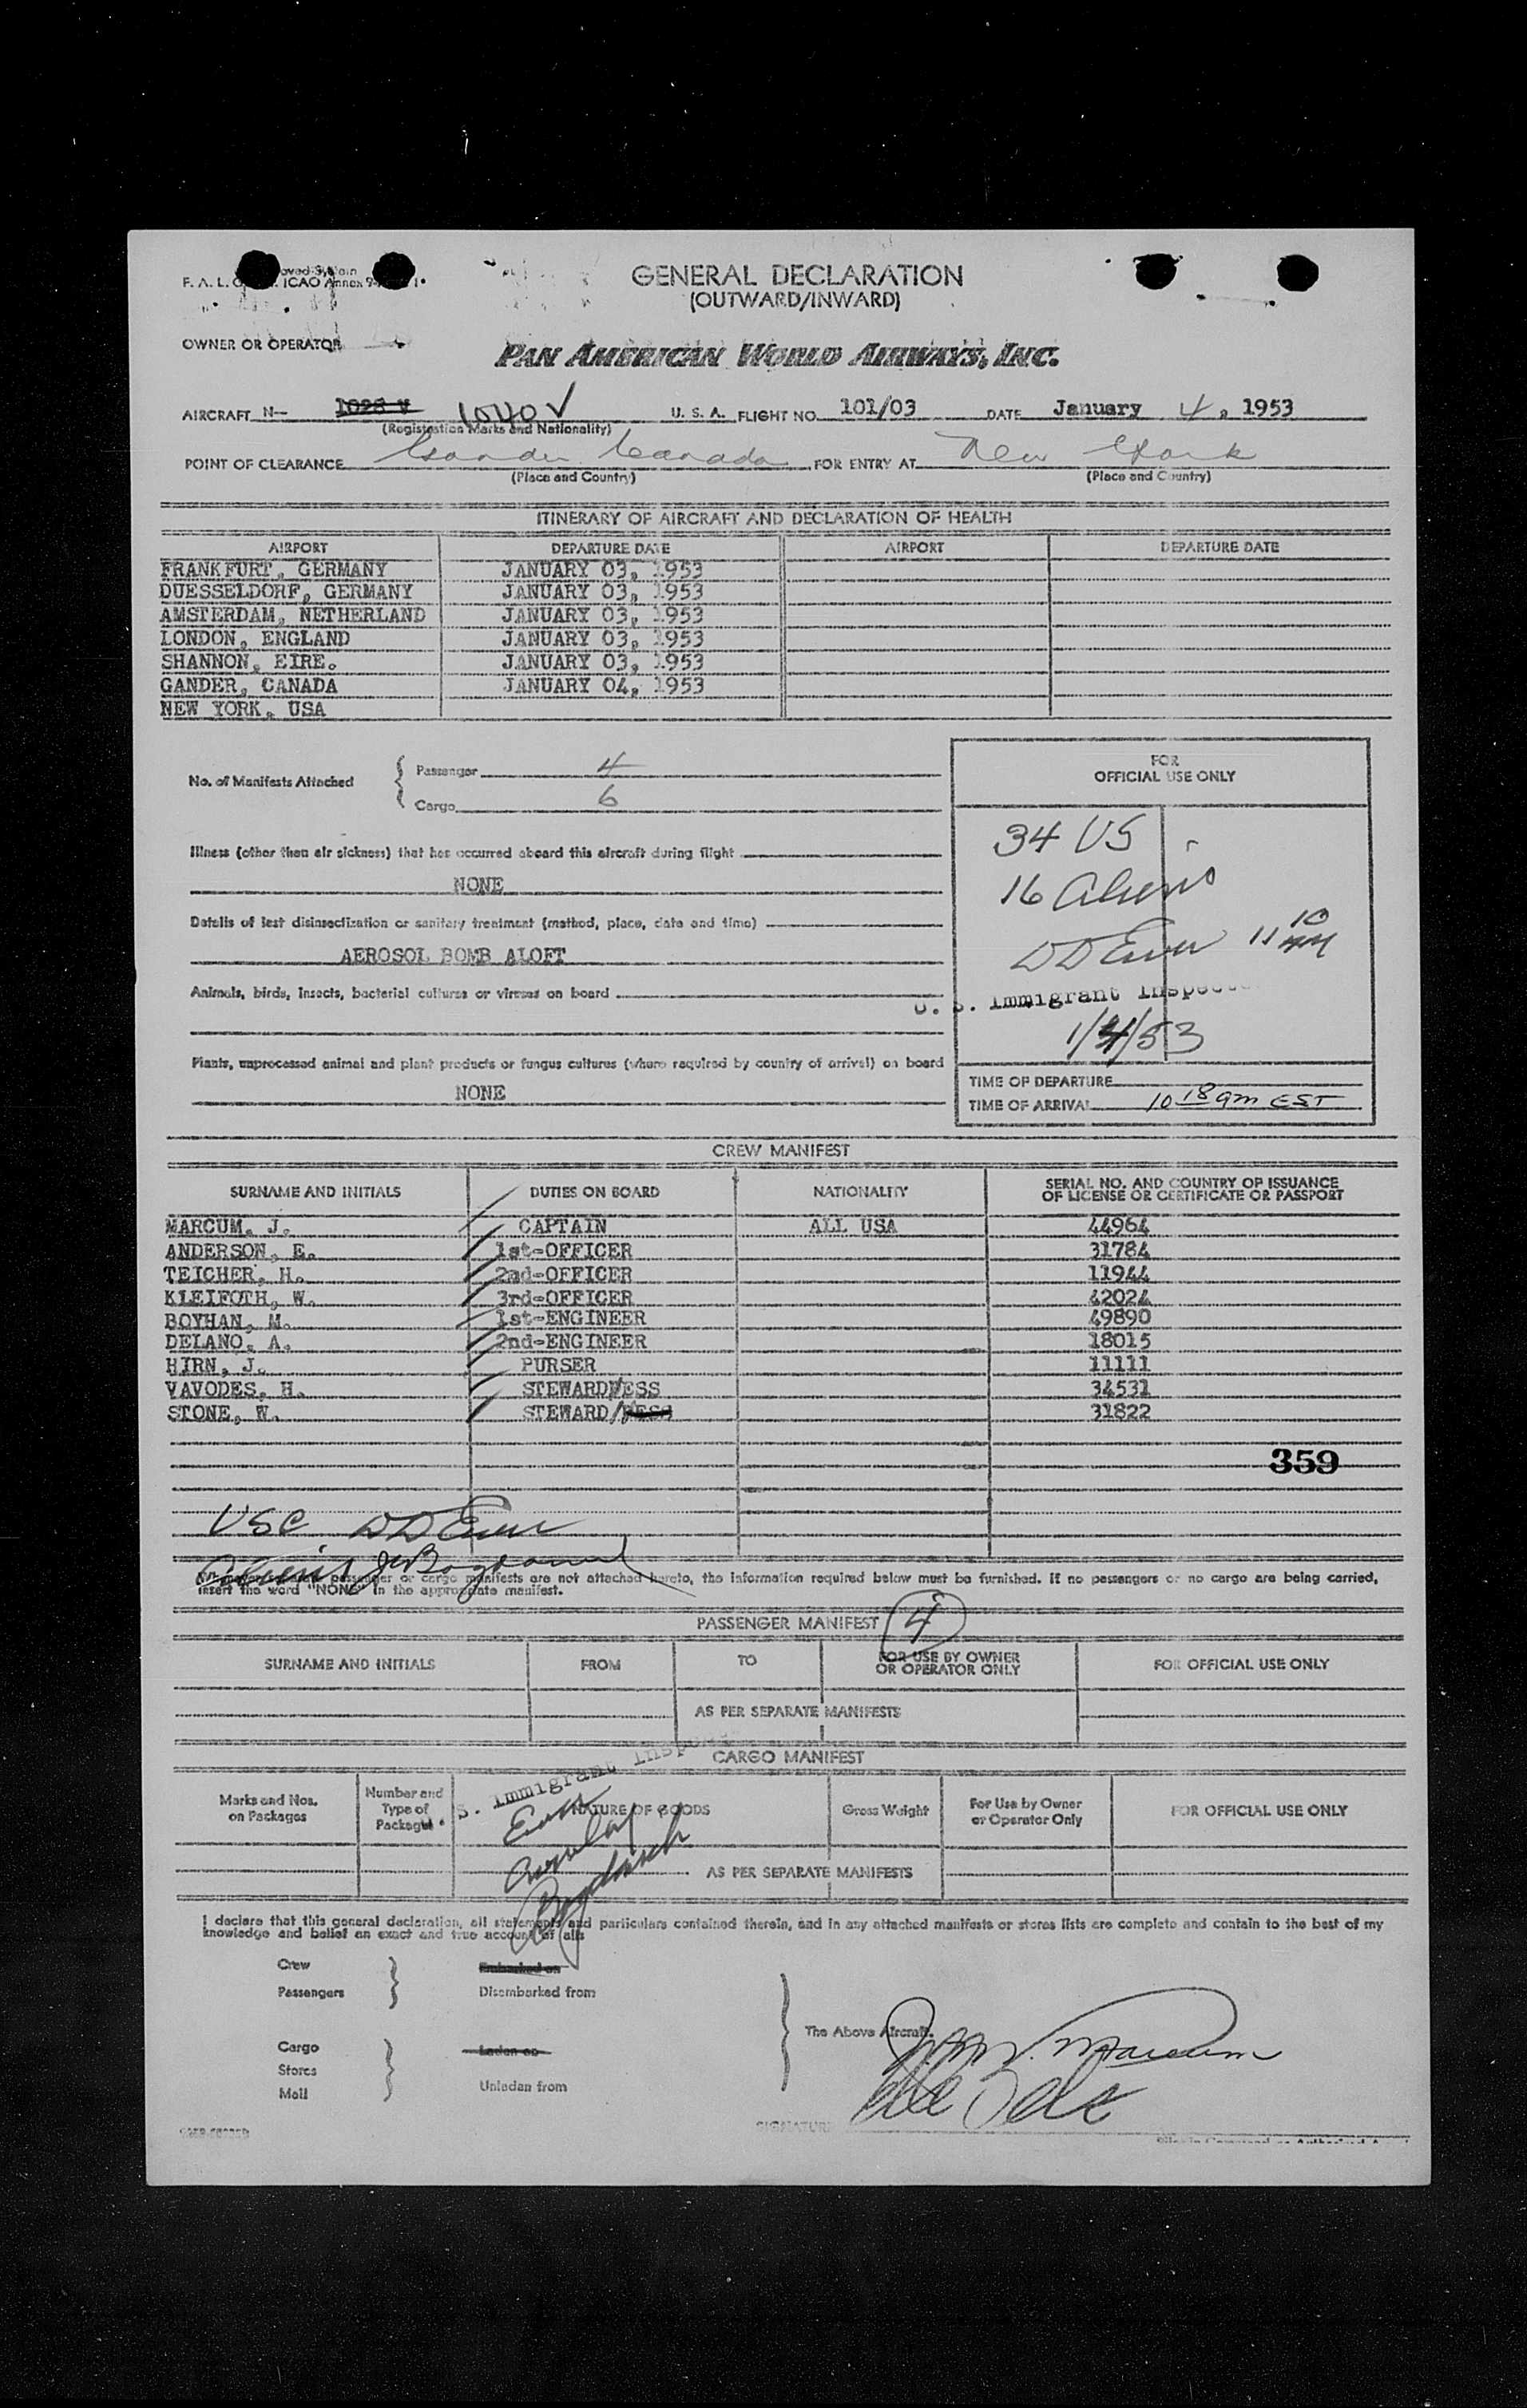 F. A. L. ICAO Annex 9
GENERAL DECLARATION
(OUTWARD/INWARD)
OWNER OR OPERATOR
PAN AMERICAN WORLD AIRWAYS, INC.
AIRCRAFT N- 1028 V 1040 V U. S. A. FLIGHT NO. 101/03 DATE January 4, 1953
(Registration Marks and Nationality)
POINT OF CLEARANCE Gander Canada FOR ENTRY AT New York
(Place and Country) (Place and Country)
ITINERARY OF AIRCRAFT AND DECLARATION OF HEALTH
AIRPORT DEPARTURE DATE AIRPORT DEPARTURE DATE
FRANKFURT, GERMANY JANUARY 03, 1953
DUESSELDORF, GERMANY JANUARY 03, 1953
AMSTERDAM, NETHERLAND JANUARY 03, 1953
LONDON, ENGLAND JANUARY 03, 1953
SHANNON, EIRE. JANUARY 03, 1953
GANDER, CANADA JANUARY 04, 1953
NEW YORK, USA
No. of Manifests Attached
Passenger 4
Cargo 6
FOR
OFFICIAL USE ONLY
34 US
16 Aliens
11 10
U. S. Immigrant Inspector
1/4/53
TIME OF DEPARTURE
TIME OF ARRIVAL 10 18 am EST
Illness (other than air sickness) that has occurred aboard this aircraft during flight
NONE
Details of last disinsectization or sanitary treatment (method, place, date and time)
AEROSOL BOMB ALOFT
Animals, birds, insects, bacterial cultures or viruses on board
Plants, unprocessed animal and plant products or fungus cultures (where required by country of arrival) on board
NONE
CREW MANIFEST
SURNAME AND INITIALS DUTIES ON BOARD NATIONALITY SERIAL NO. AND COUNTRY OF ISSUANCE
OF LICENSE OR CERTIFICATE OR PASSPORT
MARCUM, J. CAPTAIN ALL USA 44964
ANDERSON, E. 1st-OFFICER 31784
TEICHER, H. 2nd-OFFICER 11944
KLEIFOTH, W. 3rd-OFFICER 42024
BOYHAN, M. 1st-ENGINEER 49890
DELANO, A. 2nd-ENGINEER 18015
HIRN, J. PURSER 11111
VAVODES, H. STEWARD/ESS 34531
STONE, W. STEWARD/ESS 31822
359
USC
insert the word "NONE" in the appropriate manifest.
passenger or cargo manifests are not attached hereto, the information required below must be furnished. If no passengers or no cargo are being carried,
PASSENGER MANIFEST 4
SURNAME AND INITIALS FROM TO FOR USE BY OWNER
OR OPERATOR ONLY FOR OFFICIAL USE ONLY
AS PER SEPARATE MANIFESTS
CARGO MANIFEST
U. S. Immigrant Inspector
Marks and Nos.
on Packages
Number and
Type of
Packages
NATURE OF GOODS
Gross Weight
For Use by Owner
or Operator Only
FOR OFFICIAL USE ONLY
AS PER SEPARATE MANIFESTS
I declare that this general declaration, all statements and particulars contained therein, and in any attached manifests or stores lists are complete and contain to the best of my
knowledge and belief an exact and true account of all:
Crew
Passengers
Embarked on
Disembarked from
Cargo
Stores
Mail
Laden on
Unladen from
The Above Aircraft.
SIGNATURE